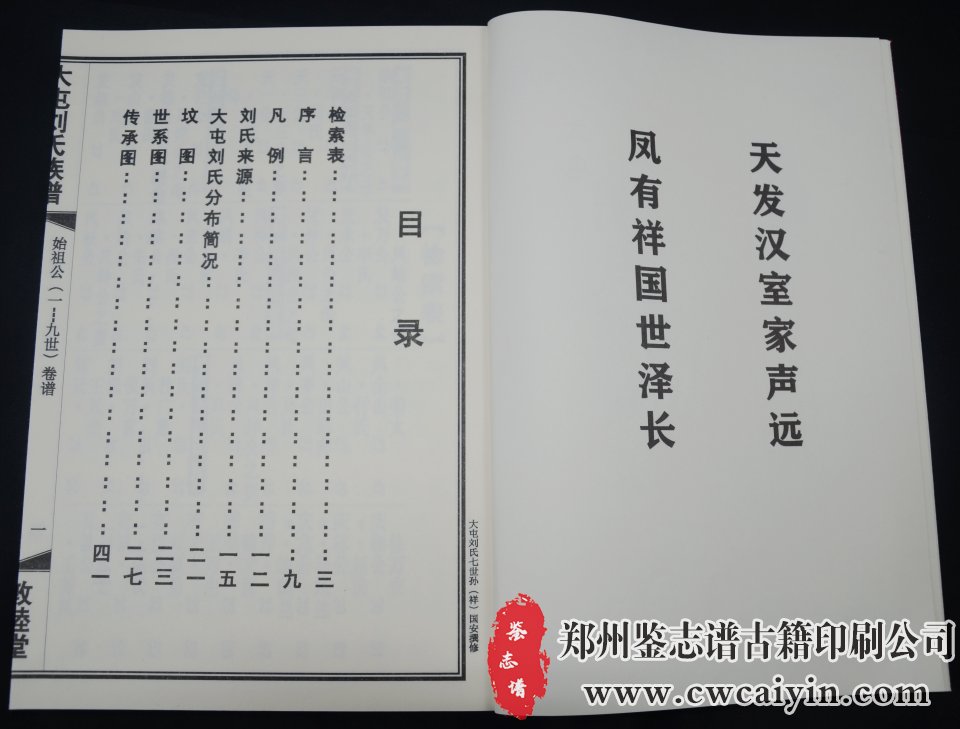 天发汉室家声远
凤有祥国世泽长
目录
检索表……三
序言……九
凡例……一二
刘氏来源……一五
大屯刘氏分布简况……二一
坟图……二三
世系图……二七
传承图……四一
大屯刘氏七世孙（祥）国安撰修
大屯刘氏族谱
始祖公（一---九世）卷谱
一
敦睦堂
鉴志谱
郑州鉴志谱古籍印刷公司
www.cwcaiyin.com